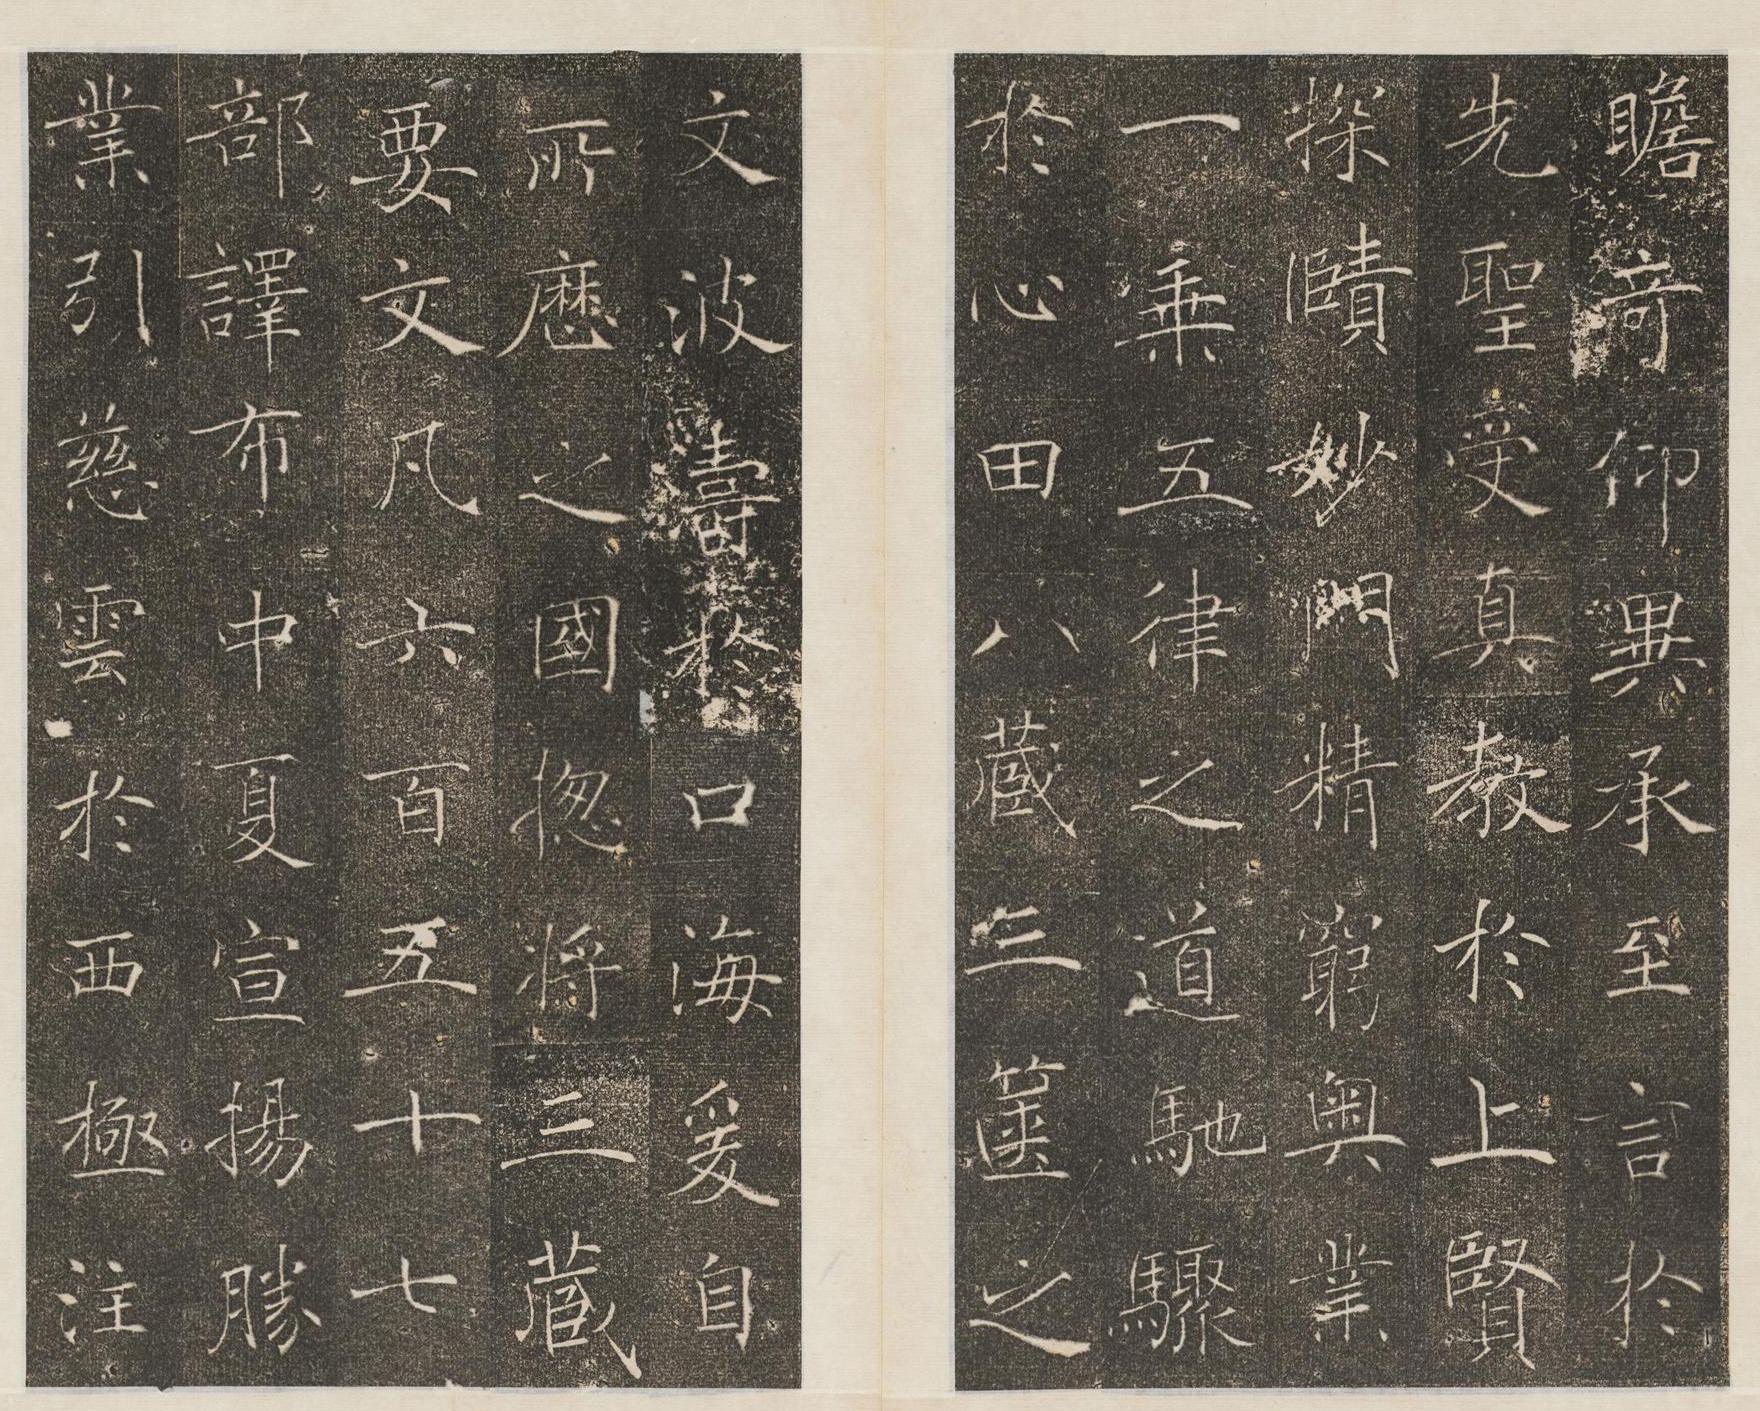 瞻奇仰異承至言於
先聖受真教於上賢
探賾妙門精窮奧業
一乗五律之道馳驟
於心田八蔵三篋之
文波濤於口海爰自
所歴之國揔將三蔵
要文凡六百五十七
部譯布中夏宣揚勝
業引慈雲於西極注